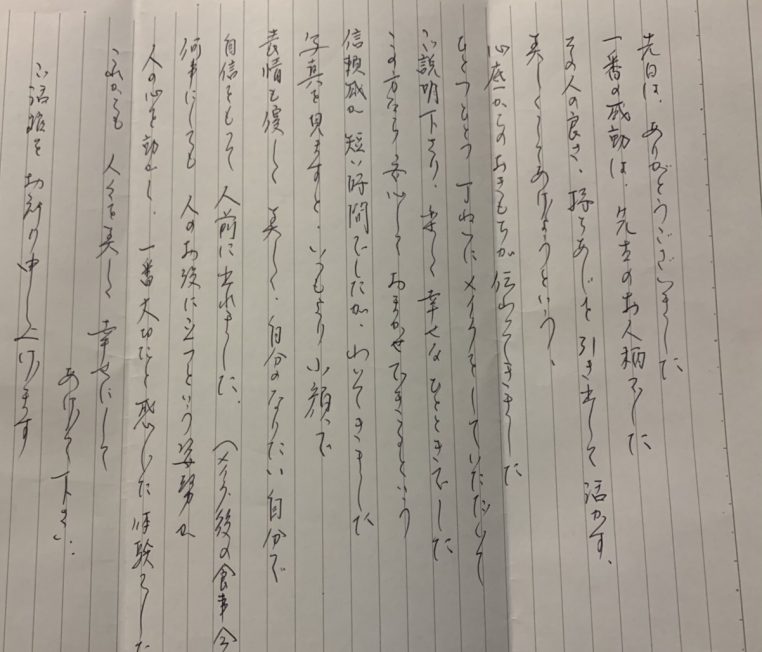 先日は、ありがとうございました
一番の感動は、先生のお人柄でした
その人の良さ、持ちあじを引き出して活かす、
美しくしてあげようという、
心底からのおきもちが伝わってきました
ひとつひとつ丁ねいにメイクをしていただいて
ご説明下さり、楽しく幸せなひとときでした
この方なら安心しておまかせできるという
信頼感が短い時間でしたが、わいてきました
写真を見ますと、いつもより小顔で
表情も優しく美しく、自分のなりたい自分で
自信をもって人前に出れました。(メイク後の食事会
何事にしても人のお役に立つという姿勢が
人の心を動かし、一番大切だと感じた体験でした
これからも人々を美しく幸せにして
あげて下さい
ご活躍をお祈り申し上げます